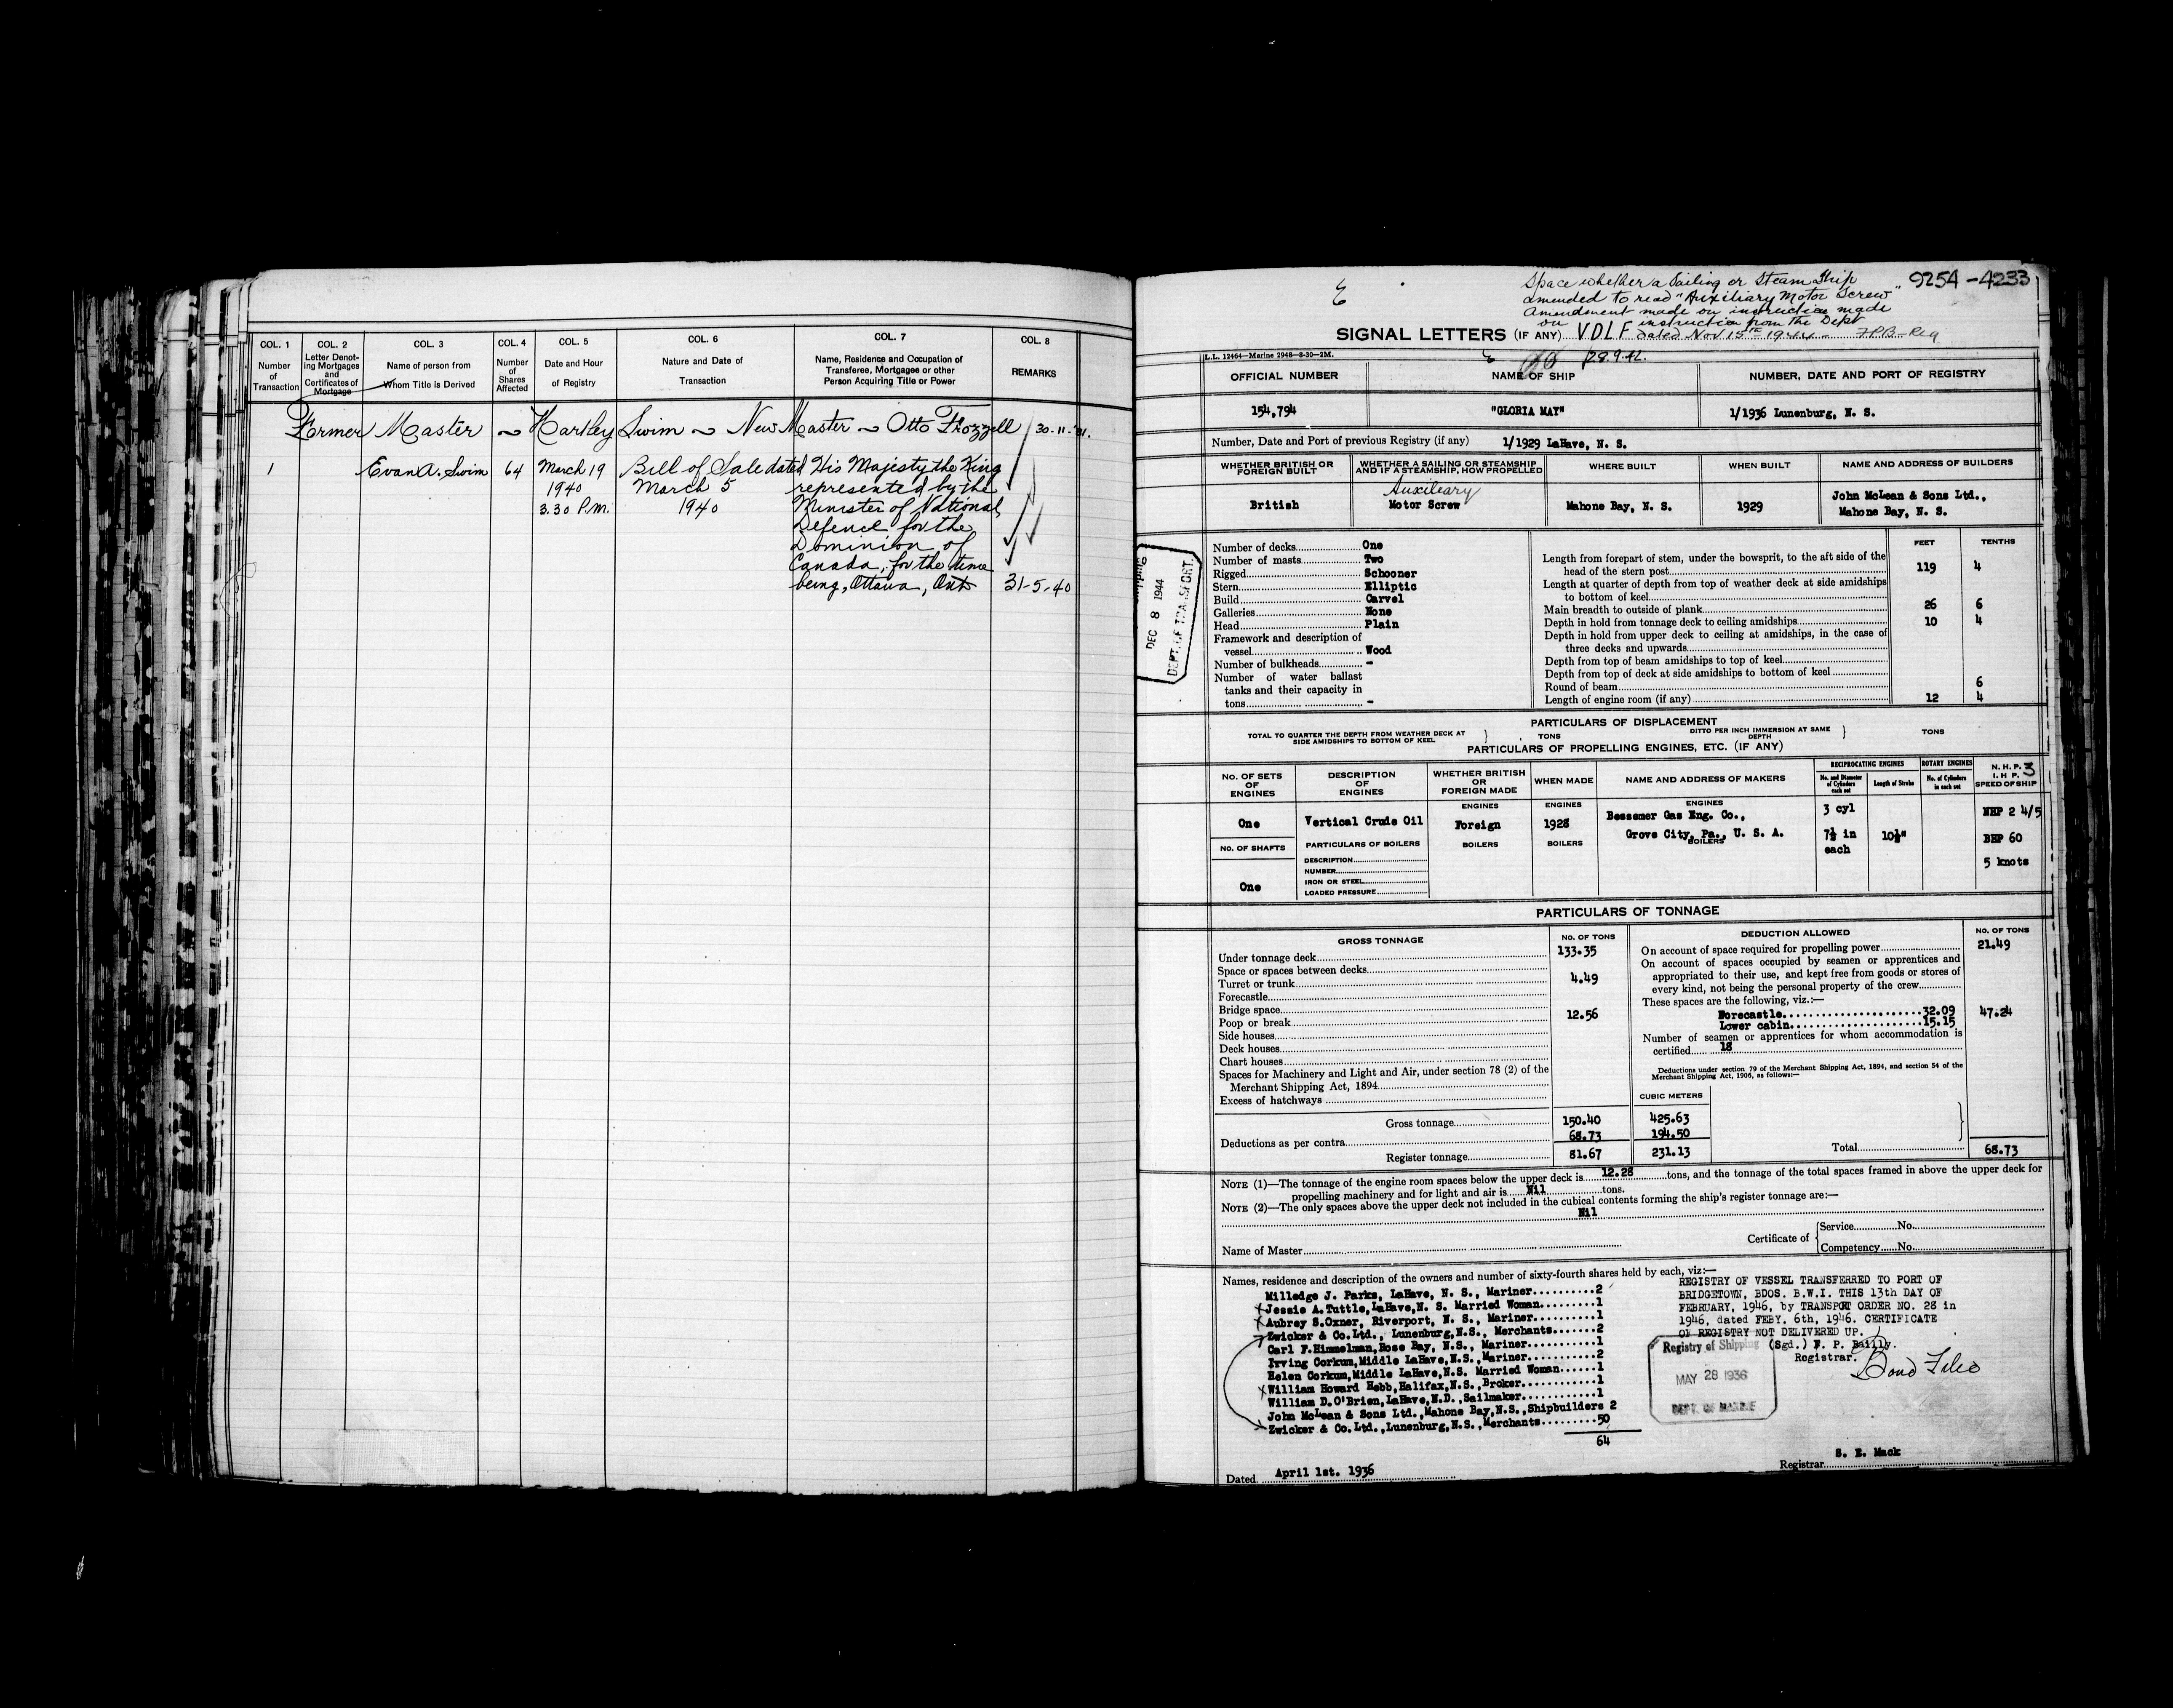 COL. 1
Number
of
Transaction
COL. 2
Letter Denot-
ing Mortgages
and
Certificates of
Mortgage
COL. 3
Name of person from
Whom Title is Derived
COL. 4
Number
of
Shares
Affected
COL. 5
Date and Hour
of Registry
COL. 6
Nature and Date of
Transaction
COL. 7
Name, Residence and Occupation of
Transferee, Mortgagee or other
Person Acquiring Title or Power
COL. 8
REMARKS
Former Master ~ Hartley Swim ~ New Master ~ Otto Frozzell 30-11-31.
1 Evan A. Swim 64 March 19 Bill of Sale dated His Majesty the King
1940 March 5 represented by the
3.30 P.M. 1940 Minister of National
Defence for the
Dominion of
Canada, for the time
being, Ottawa, Ont 31-5-40
E
Space whether a Sailing or Steam Ship 9254-4233
amended to read "Auxiliary Motor Screw"
Amendment made on instruction made
on instruction from the Dept
SIGNAL LETTERS (IF ANY) VDLF dated Nov 15th 1944 - F.P.B-Reg
L.L. 12464—Marine 2948—8-30—2M.
28.9.42.
OFFICIAL NUMBER NAME OF SHIP NUMBER, DATE AND PORT OF REGISTRY
154,794 "GLORIA MAY" 1/1936 Lunenburg, N. S.
Number, Date and Port of previous Registry (if any) 1/1929 LaHave, N. S.
WHETHER BRITISH OR
FOREIGN BUILT
WHETHER A SAILING OR STEAMSHIP
AND IF A STEAMSHIP, HOW PROPELLED
WHERE BUILT
WHEN BUILT
NAME AND ADDRESS OF BUILDERS
British
Auxiliary
Motor Screw
Mahone Bay, N. S.
1929
John McLean & Sons Ltd.,
Mahone Bay, N. S.
DEC 8 1944
DEPT. OF TRANSPORT.
Number of decks One
Number of masts Two
Rigged Schooner
Stern Elliptic
Build Carvel
Galleries None
Head Plain
Framework and description of
vessel Wood
Number of bulkheads -
Number of water ballast
tanks and their capacity in
tons -
FEET TENTHS
Length from forepart of stem, under the bowsprit, to the aft side of the
head of the stern post 119 4
Length at quarter of depth from top of weather deck at side amidships
to bottom of keel
Main breadth to outside of plank 26 6
Depth in hold from tonnage deck to ceiling amidships 10 4
Depth in hold from upper deck to ceiling at amidships, in the case of
three decks and upwards
Depth from top of beam amidships to top of keel
Depth from top of deck at side amidships to bottom of keel
Round of beam 6
Length of engine room (if any) 12 4
PARTICULARS OF DISPLACEMENT
TOTAL TO QUARTER THE DEPTH FROM WEATHER DECK AT
SIDE AMIDSHIPS TO BOTTOM OF KEEL
TONS
DITTO PER INCH IMMERSION AT SAME
DEPTH
TONS
PARTICULARS OF PROPELLING ENGINES, ETC. (IF ANY)
No. OF SETS
OF
ENGINES
DESCRIPTION
OF
ENGINES
WHETHER BRITISH
OR
FOREIGN MADE
WHEN MADE
NAME AND ADDRESS OF MAKERS
RECIPROCATING ENGINES
No. and Diameter
of Cylinders
each set
Length of Stroke
ROTARY ENGINES
No. of Cylinders
in each set
N. H. P. 3
I. H. P.
SPEED OF SHIP
ENGINES ENGINES ENGINES
One Vertical Crude Oil Foreign 1928 Bessemer Gas Eng. Co., 3 cyl NHP 2 4/5
Grove City, Pa., U. S. A. 7½ in 10½" BHP 60
each
5 knots
NO. OF SHAFTS PARTICULARS OF BOILERS BOILERS BOILERS BOILERS
One
DESCRIPTION
NUMBER
IRON OR STEEL
LOADED PRESSURE
PARTICULARS OF TONNAGE
GROSS TONNAGE No. OF TONS
Under tonnage deck 133.35
Space or spaces between decks
Turret or trunk 4.49
Forecastle
Bridge space
Poop or break 12.56
Side houses
Deck houses
Chart houses
Spaces for Machinery and Light and Air, under section 78 (2) of the
Merchant Shipping Act, 1894
Excess of hatchways
Gross tonnage 150.40 425.63
Deductions as per contra 68.73 194.50
Register tonnage 81.67 231.13
DEDUCTION ALLOWED No. OF TONS
On account of space required for propelling power 21.49
On account of spaces occupied by seamen or apprentices and
appropriated to their use, and kept free from goods or stores of
every kind, not being the personal property of the crew
These spaces are the following, viz.:—
Forecastle 32.09 47.24
Lower cabin 15.15
Number of seamen or apprentices for whom accommodation is
certified 18
Deductions under section 79 of the Merchant Shipping Act, 1894, and section 54 of the
Merchant Shipping Act, 1906, as follows:—
CUBIC METERS
Total 68.73
NOTE (1)—The tonnage of the engine room spaces below the upper deck is 12.28 tons, and the tonnage of the total spaces framed in above the upper deck for
propelling machinery and for light and air is Nil tons.
NOTE (2)—The only spaces above the upper deck not included in the cubical contents forming the ship's register tonnage are:—
Nil
Name of Master
Certificate of
Service No.
Competency No.
Names, residence and description of the owners and number of sixty-fourth shares held by each, viz:—
Milledge J. Parks, LaHave, N. S., Mariner 2
Jessie A. Tuttle, LaHave, N. S. Married Woman 1
Aubrey S. Oxner, Riverport, N. S., Mariner 1
Zwicker & Co. Ltd., Lunenburg, N.S., Merchants 2
Carl F. Himmelman, Rose Bay, N. S., Mariner 1
Irving Corkum, Middle LaHave, N.S., Mariner 2
Helen Corkum, Middle LaHave, N.S. Married Woman 1
William Howard Hebb, Halifax, N.S., Broker 1
William D. O'Brien, LaHave, N.D., Sailmaker 1
John McLean & Sons Ltd., Mahone Bay, N.S., Shipbuilders 2
Zwicker & Co. Ltd., Lunenburg, N.S., Merchants 50
64
REGISTRY OF VESSEL TRANSFERRED TO PORT OF
BRIDGETOWN, BDOS. B.W.I. THIS 13th DAY OF
FEBRUARY, 1946, by TRANSPORT ORDER NO. 28 in
1946, dated FEBY. 6th, 1946. CERTIFICATE
OF REGISTRY NOT DELIVERED UP.
(Sgd.) F. P. Bailly.
Registrar.
Registry of Shipping
MAY 28 1936
DEPT. OF MARINE
Dated April 1st. 1936
S. E. Mack
Registrar